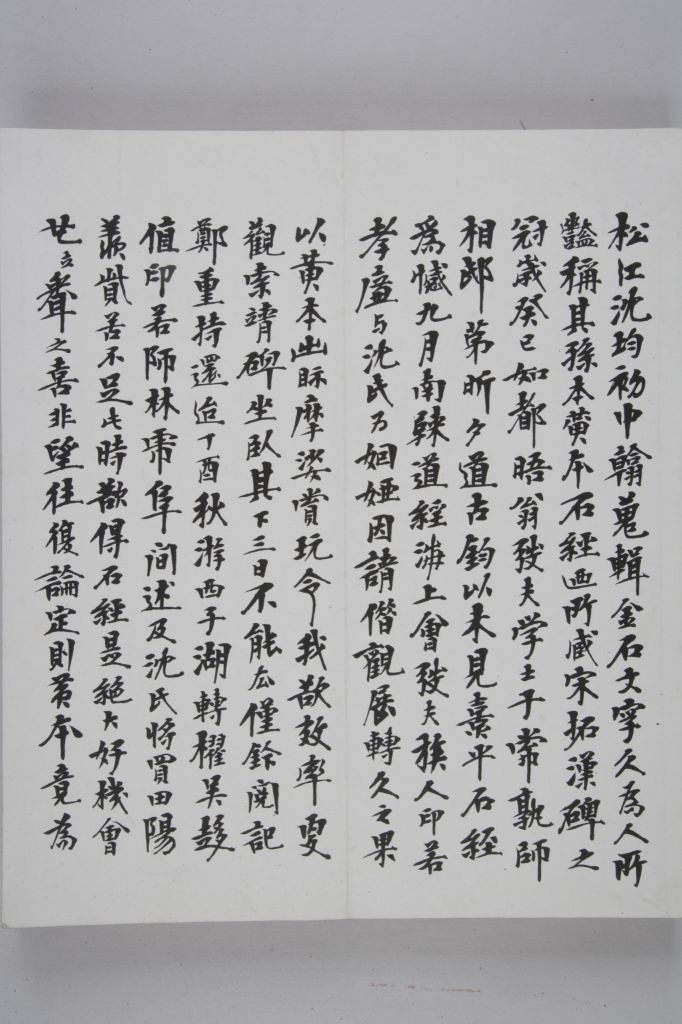 松江沈均初中翰蒐輯金石文字久為人所
豔稱其孫本黃本石經西所藏宋拓漢碑之
冠歲癸巳如都晤翁弢夫学士于常孰師
相邸第昕夕道古鈞以未見熹平石經
為憾九月南歸道經海上會弢夫族人印若
孝廉与沈氏乃姻婭因請偕觀展轉久之果
以黃本出眎摩娑賞玩令我歎效率更
觀索靖碑坐臥其下三日不能厺僅錄閱記
鄭重持還迨丁酉秋游西子湖轉櫂吳
值印若師林帚阜间述及沈氏將買田陽
羨貲苦不足此時欲得石經是絕大好機會
之喜非望往復論定則黃本竟為